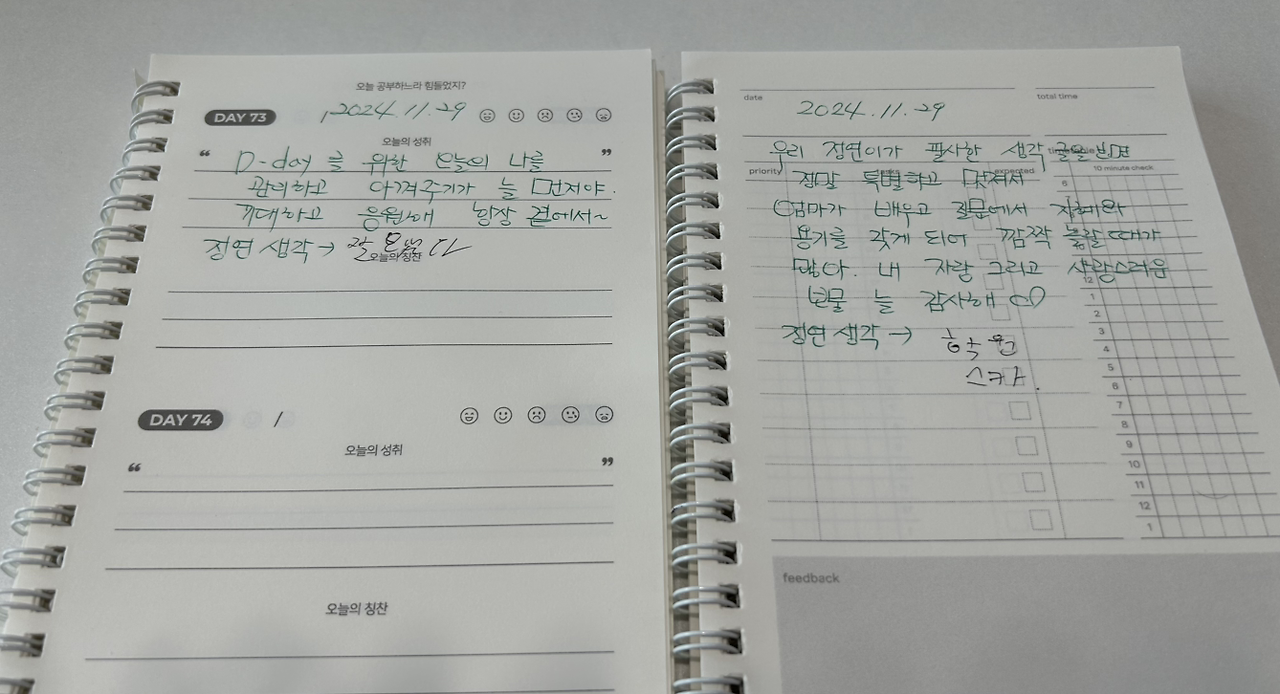 오늘 공부하느라 힘들었지?
DAY 73 / 2024.11.29
오늘의 성취
“ D-day를 위한 오늘의 나를 ”
관리하고 아껴주기가 늘 먼저야.
기대하고 응원해 항상 곁에서~
정연 생각 →
오늘의 칭찬
DAY 74 /
오늘의 성취
“ ”
오늘의 칭찬
date 2024.11.29 total time
우리 정연이가 필사한 생각 글을 보면
priority expected 10 minute check
정말 특별하고 멋져서
엄마가 배우고 질문에서 지혜와
용기를 갖게 되어 깜짝 놀랄 때가
많아. 내 자랑 그리고 사랑스러운
보물 늘 감사해 ♡
정연 생각 → 학원
스카.
6
12
1
2
3
4
5
6
7
8
9
10
11
12
1
feedback